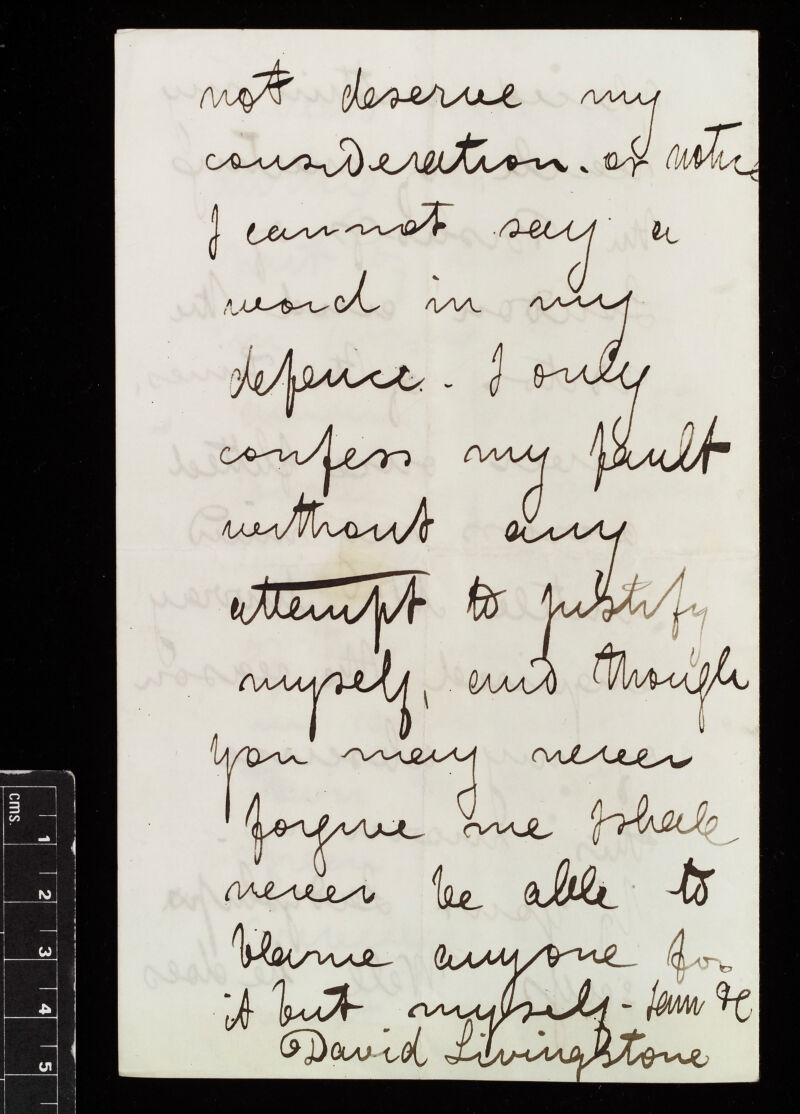 not deserve my
consideration. or notice
I cannot say a
word in my
defence. I only
confess my fault
without any
attempt to justify
myself, and though
you may never
forgive me I shall
never be able to
blame anyone for
it but myself - I am &c
David Livingstone
cms.
1
2
3
4
5